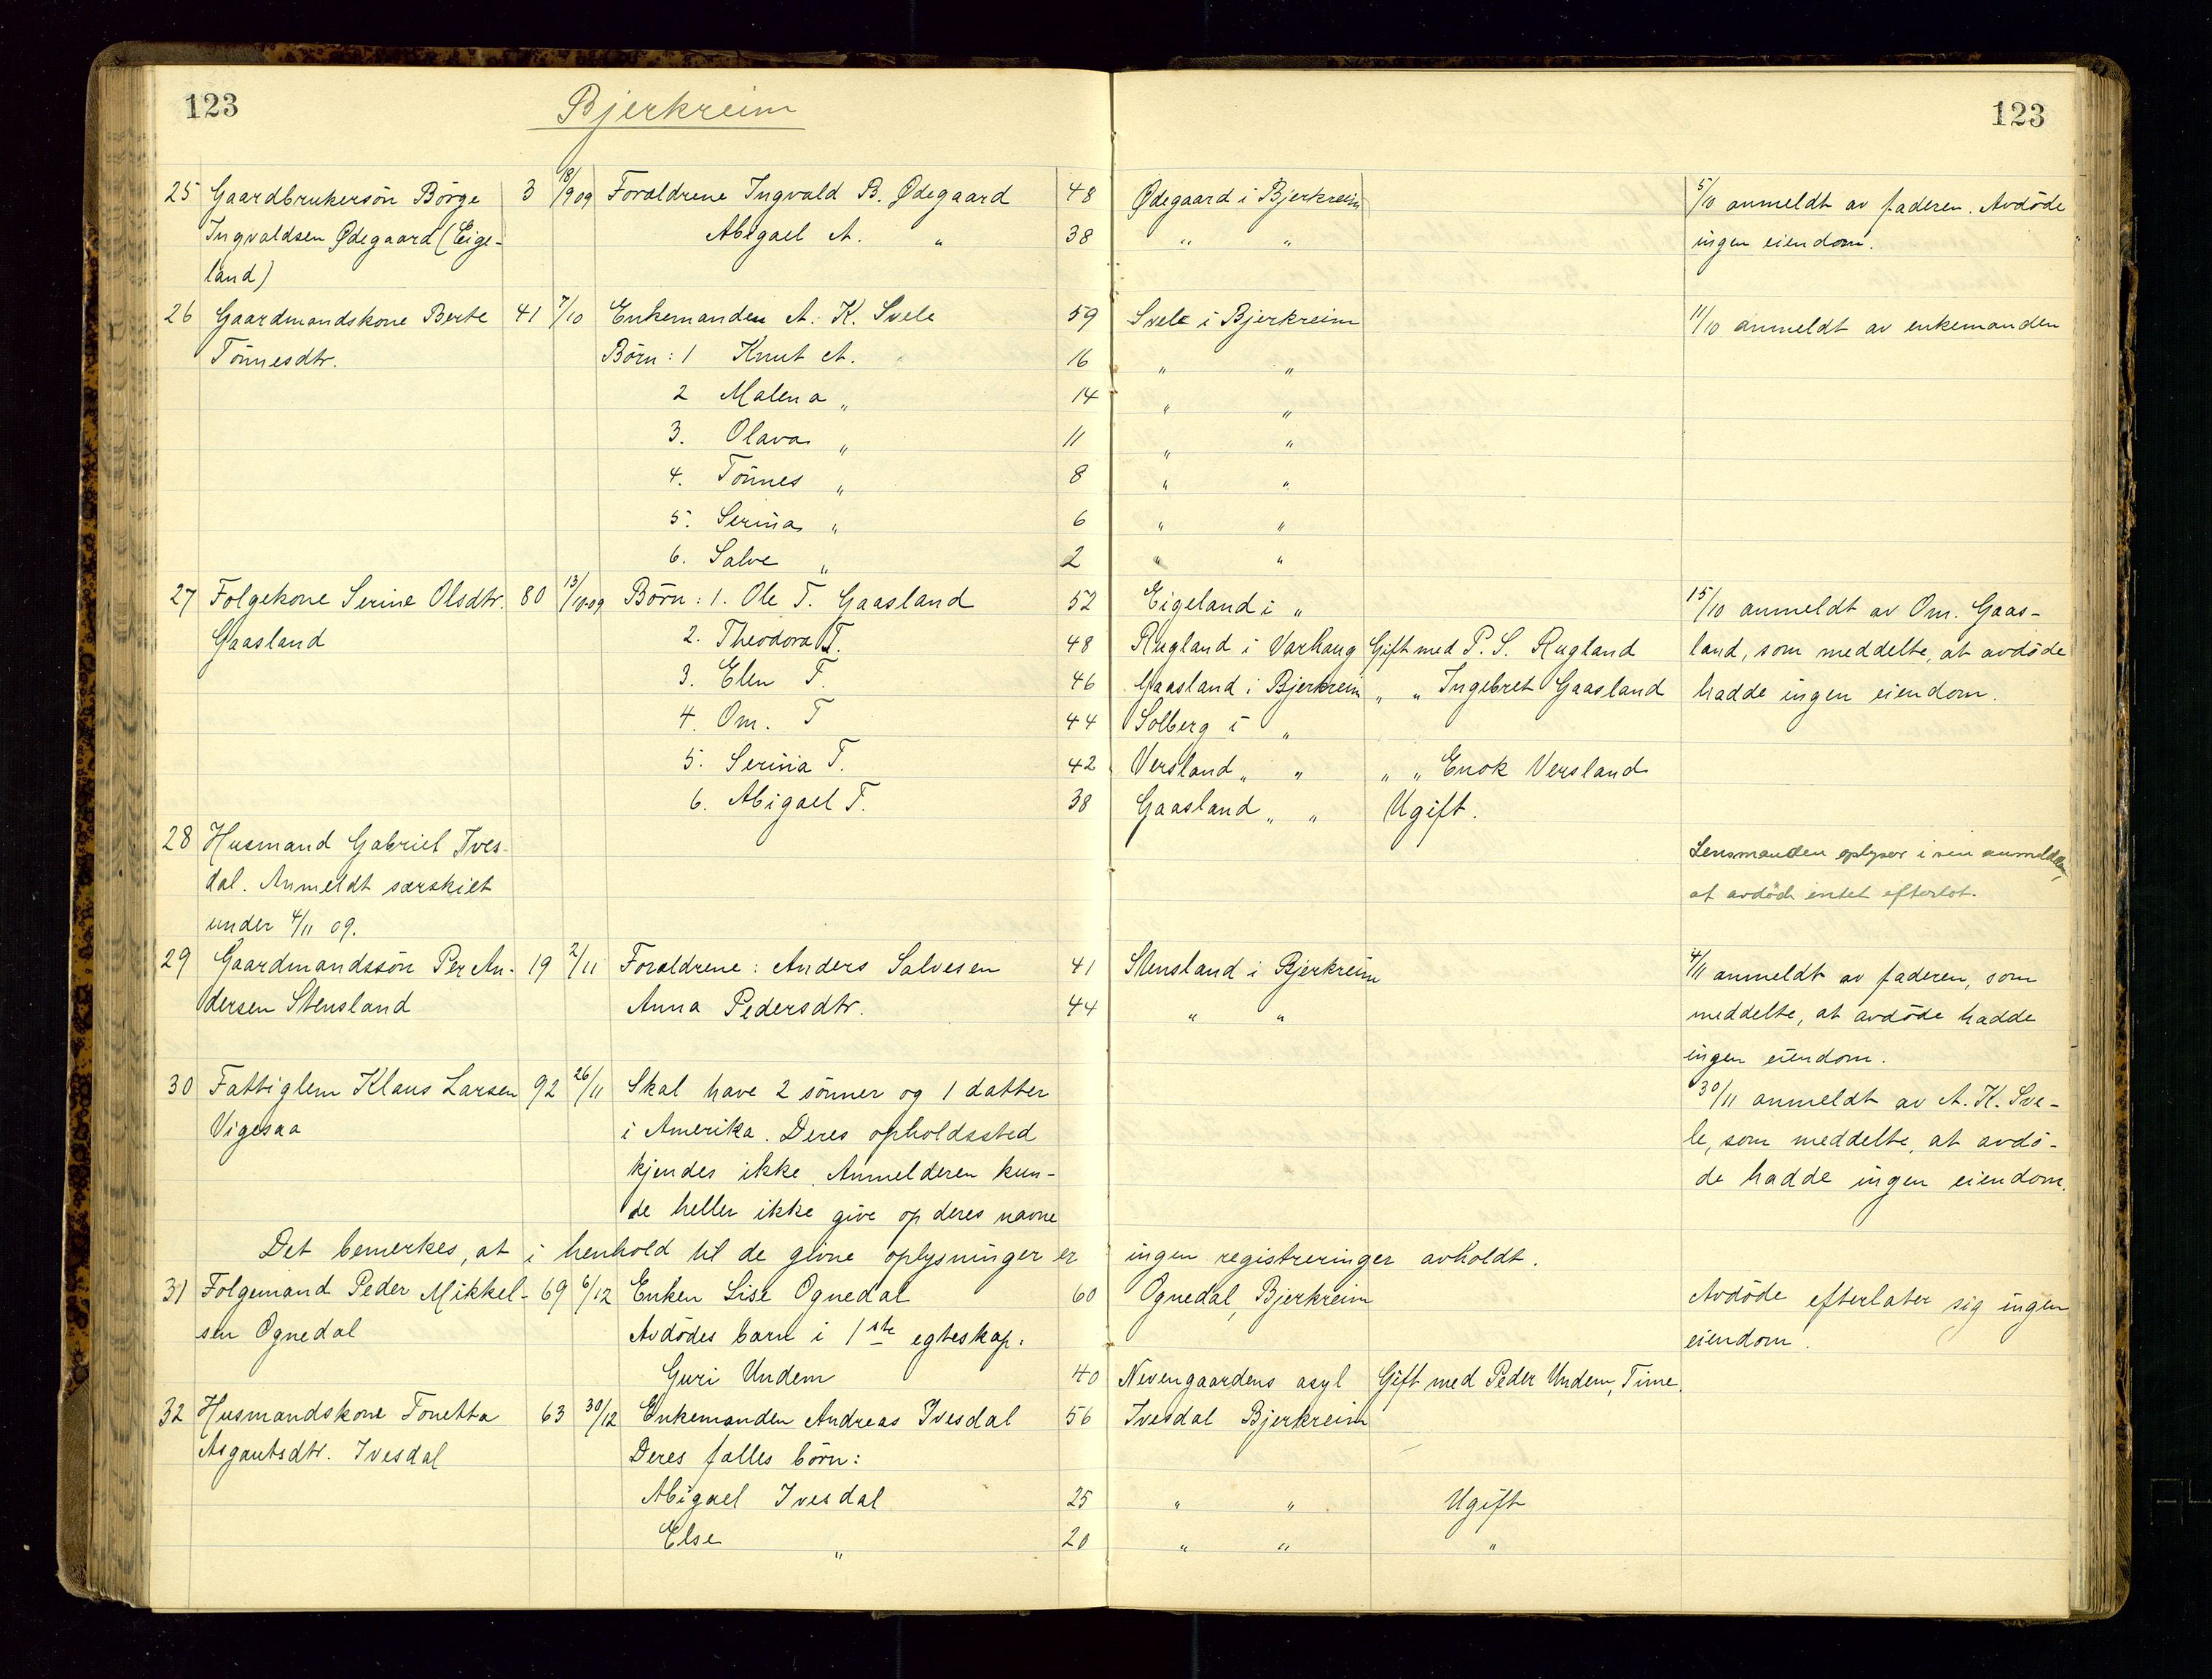 123 Bjerkreim 123
25 Gaardbrukersön Börge 3 18/9 09 Forældrene Ingvald B. Ødegaard 48 Ødegaard i Bjerkreim 5/10 anmeldt av faderen. Avdöde
Ingvaldsen Ødegaard (Eige- Abigael A. " 38 " " ingen eiendom.
land)
26 Gaardmandskone Berte 41 7/10 Enkemanden A. K. Svele 59 Svele i Bjerkreim 11/10 anmeldt av enkemanden
Tönnesdtr. Börn: 1 Knut A. 16 " "
2 Malena " 14 " "
3. Olava " 11 " "
4. Tönnes " 8 " "
5. Serina " 6 " "
6. Salve " 2 " "
27 Folgekone Serine Olsdtr. 80 13/10-09 Börn: 1. Ole T. Gaasland 52 Eigeland i " 15/10 anmeldt av Om. Gaas-
Gaasland 2. Theodora T. 48 Rugland i Varhaug Gift med P. S. Rugland land, som meddelte, at avdöde
3. Elen T. 46 Gaasland i Bjerkreim " " Ingebret Gaasland hadde ingen eiendom.
4. Om. T 44 Solberg i "
5. Serina T. 42 Versland " " " " Enok Versland
6. Abigael T. 38 Gaasland " " Ugift.
28 Husmand Gabriel Ives- Lensmanden oplyser i sin anmeldelse,
dal. Anmeldt særskilt at avdöde intet efterlot.
under 4/11 09.
29 Gaardmandssön Per An- 19 2/11 Forældrene: Anders Salvesen 41 Stensland i Bjerkreim 4/11 anmeldt av faderen, som
dersen Stensland Anna Pedersdtr. 44 " " meddelte, at avdöde hadde
ingen eiendom.
30 Fattiglem Klaus Larsen 92 26/11 Skal have 2 sönner og 1 datter 30/11 anmeldt av A. K. Sve-
Vigesaa i Amerika. Deres opholdssted le, som meddelte, at avdö-
kjendes ikke. Anmelderen kun- de hadde ingen eiendom.
de heller ikke give op deres navne
Det bemerkes, at i henhold til de givne oplysninger er ingen registreringer avholdt.
31 Folgemand Peder Mikkel- 69 6/12 Enken Lise Ognedal 60 Ognedal, Bjerkreim Avdöde efterlater sig ingen
sen Ognedal Avdödes barn i 1ste egteskap: eiendom.
Guri Undem 40 Nevengaardens asyl Gift med Peder Undem, Time.
32 Husmandskone Tonetta 63 30/12 Enkemanden Andreas Ivesdal 56 Ivesdal Bjerkreim
Asgautsdtr. Ivesdal Deres fælles börn:
Abigael Ivesdal 25 " " Ugift
Else " 20 " " "